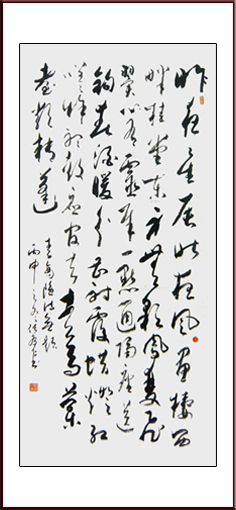 昨夜星辰昨夜風畫樓西
畔桂堂東身無彩鳳雙飛
翼心有靈犀一點通隔座送
鉤春酒暖分曹射覆蠟燈紅
嗟余聽鼓應官去走馬蘭
臺類轉蓬
李商隱詩無題
丙申之冬